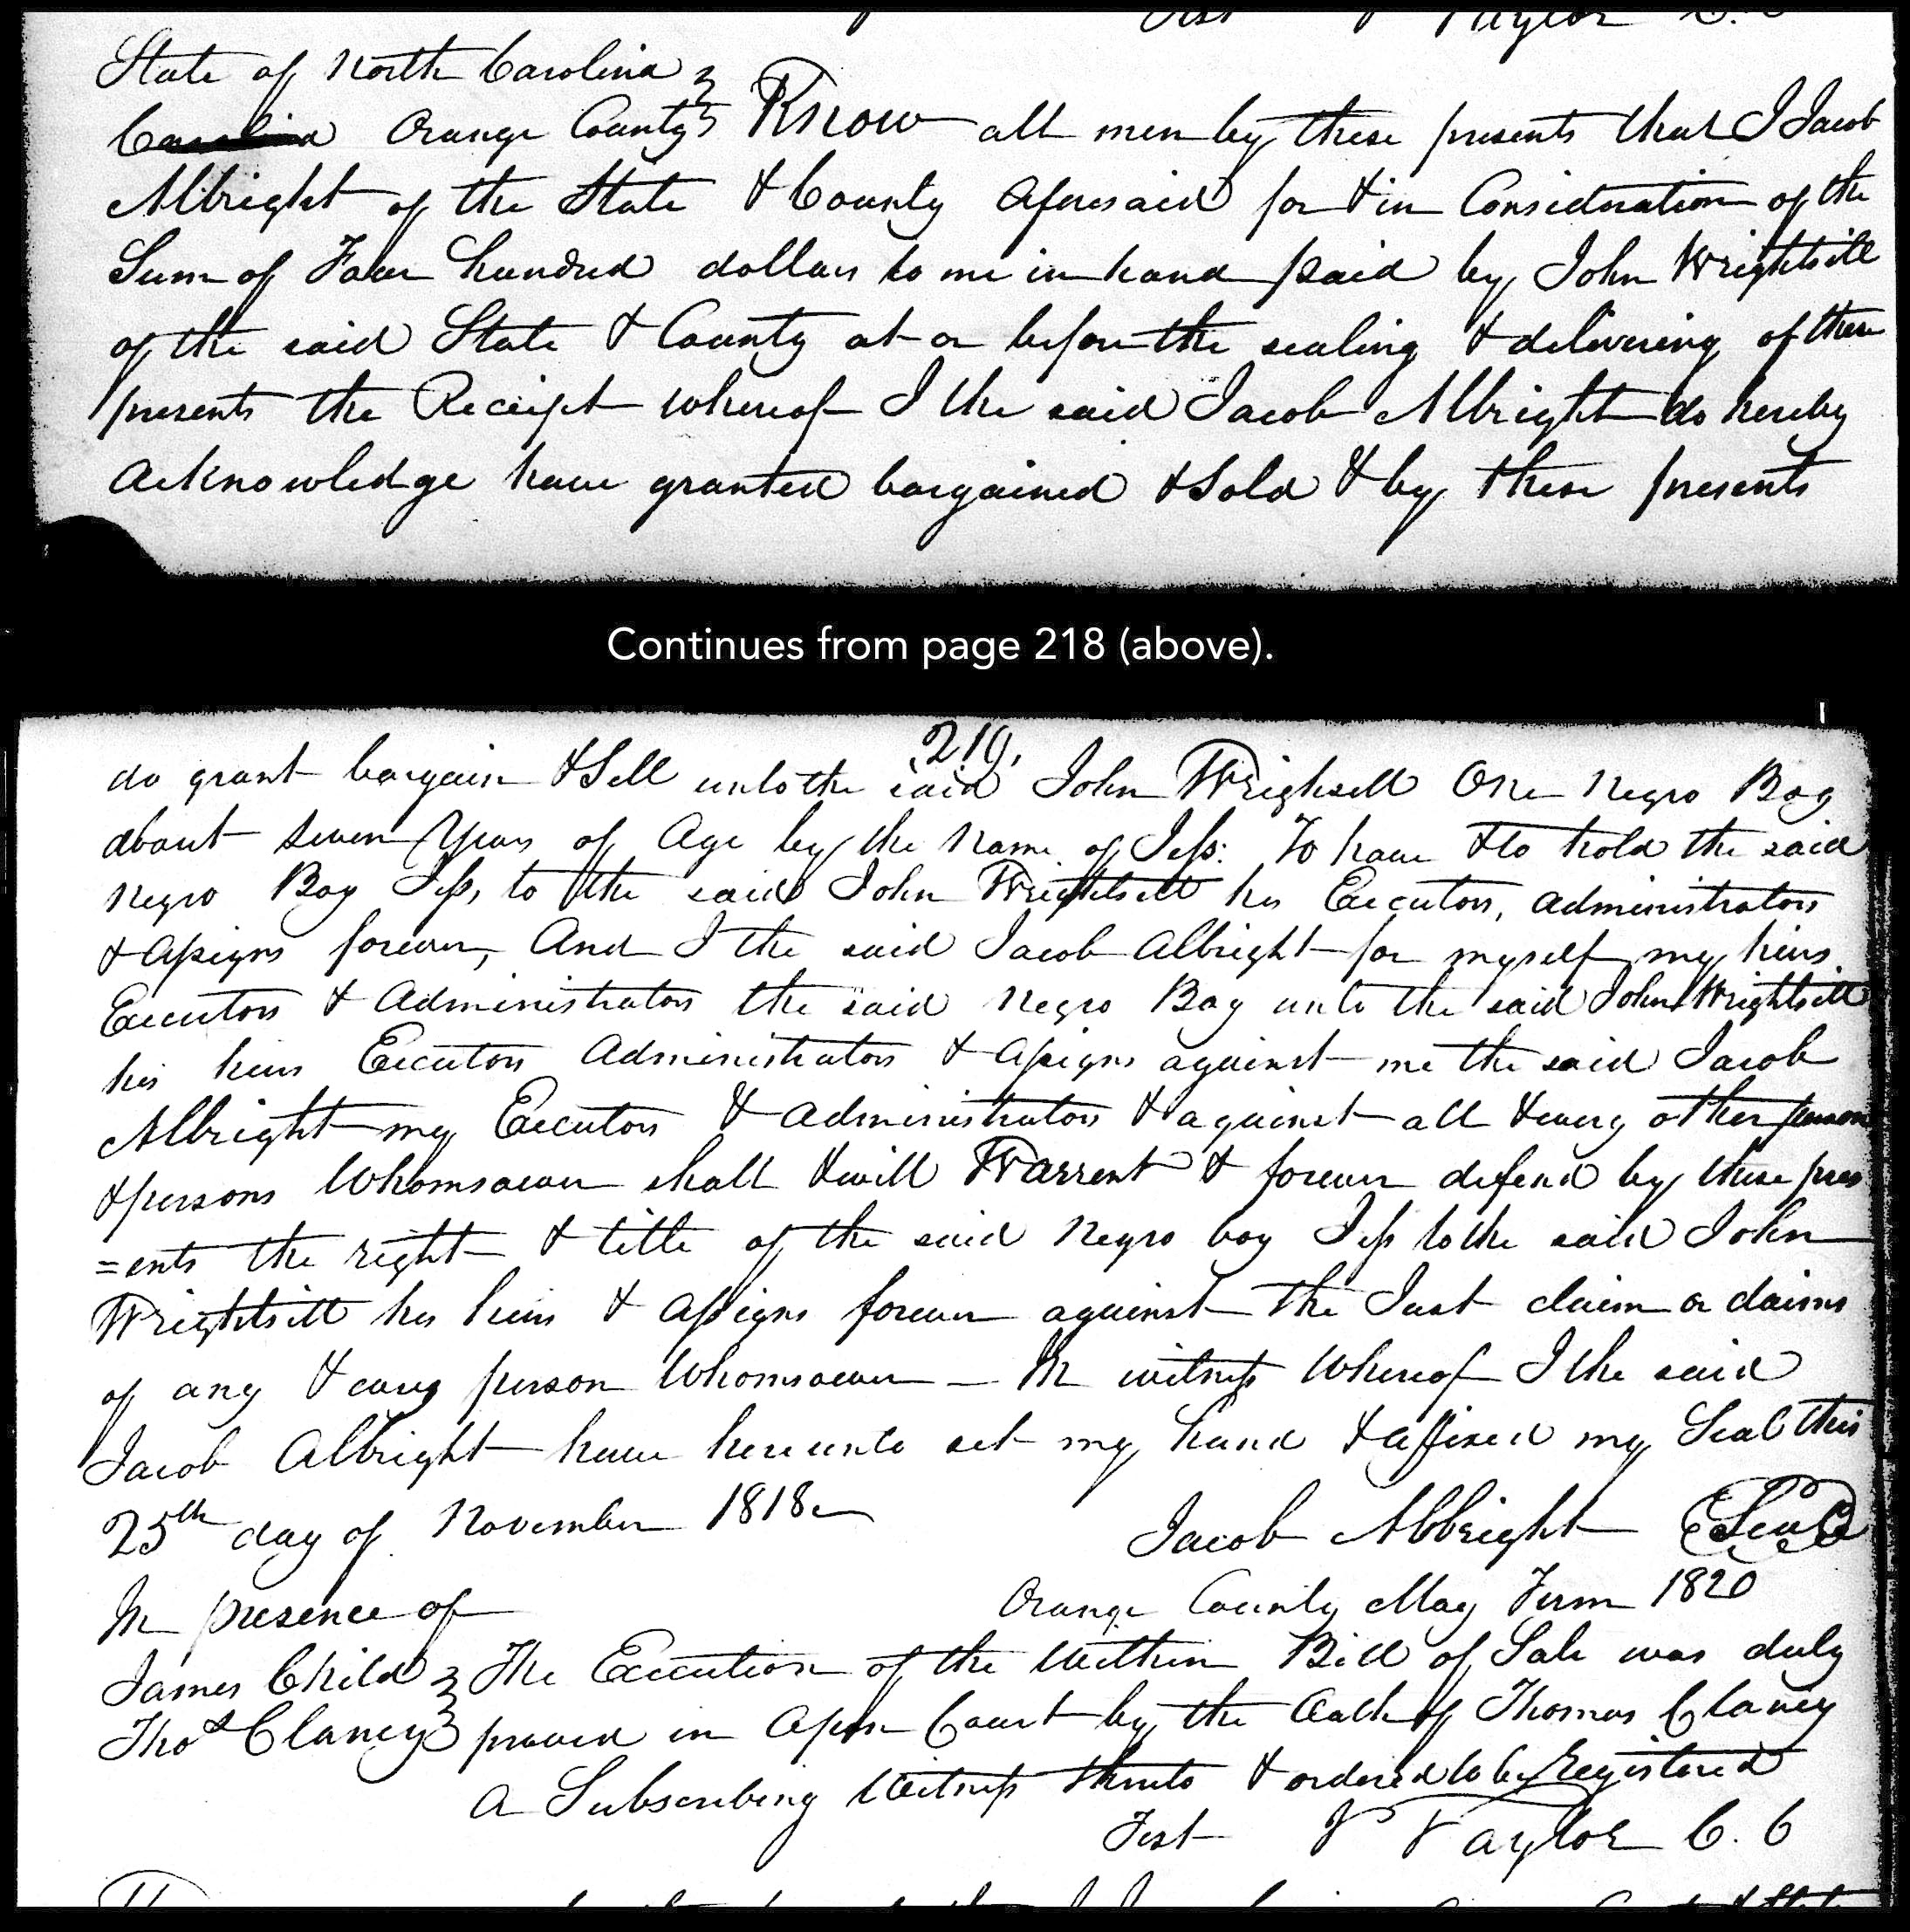 Test J Taylor C. C
State of North Carolina
Carolina Orange County Know all men by these presents that I Jacob
Albright of the State & County aforesaid for & in Consideration of the
Sum of Four hundred dollars to me in hand paid by John Wrightsill
of the said State & County at or before the sealing & delivering of these
presents the Receipt whereof I the said Jacob Albright do hereby
acknowledge have granted bargained & Sold & by these presents
Continues from page 218 (above).
219,
do grant bargain & Sell unto the said John Wrighsell One Negro Boy
about seven Years of Age by the Name of Jess: To have & to hold the said
Negro Boy Jess, to the said John Wrightsill his Executors, administrators
& Assigns forever, And I the said Jacob Albright for myself my heirs
Executors & Administrators the said Negro Boy unto the said John Wrightsill
his heirs Executors Administrators & Assigns against me the said Jacob
Albright my Executors & Administrators & against all & every other person
& persons Whomsoever shall & will Warrent & forever defend by these pres
=ents the right & title of the said Negro boy Jess to the said John
Wrightsill his heirs & assigns forever against the Just claim or claims
of any & every person Whomsoever – In witness Whereof I the said
Jacob Albright have hereunto set my hand & affixed my Seal this
25th day of November 1818
Jacob Albright Seal
In presence of
Orange County May Term 1820
James Child The Execution of the Within Bill of Sale was duly
Thos Clancy proved in Open Court by the Oath of Thomas Clancy
A Subscribing Witness thereto & ordered to be Registered
Test J Taylor C. C